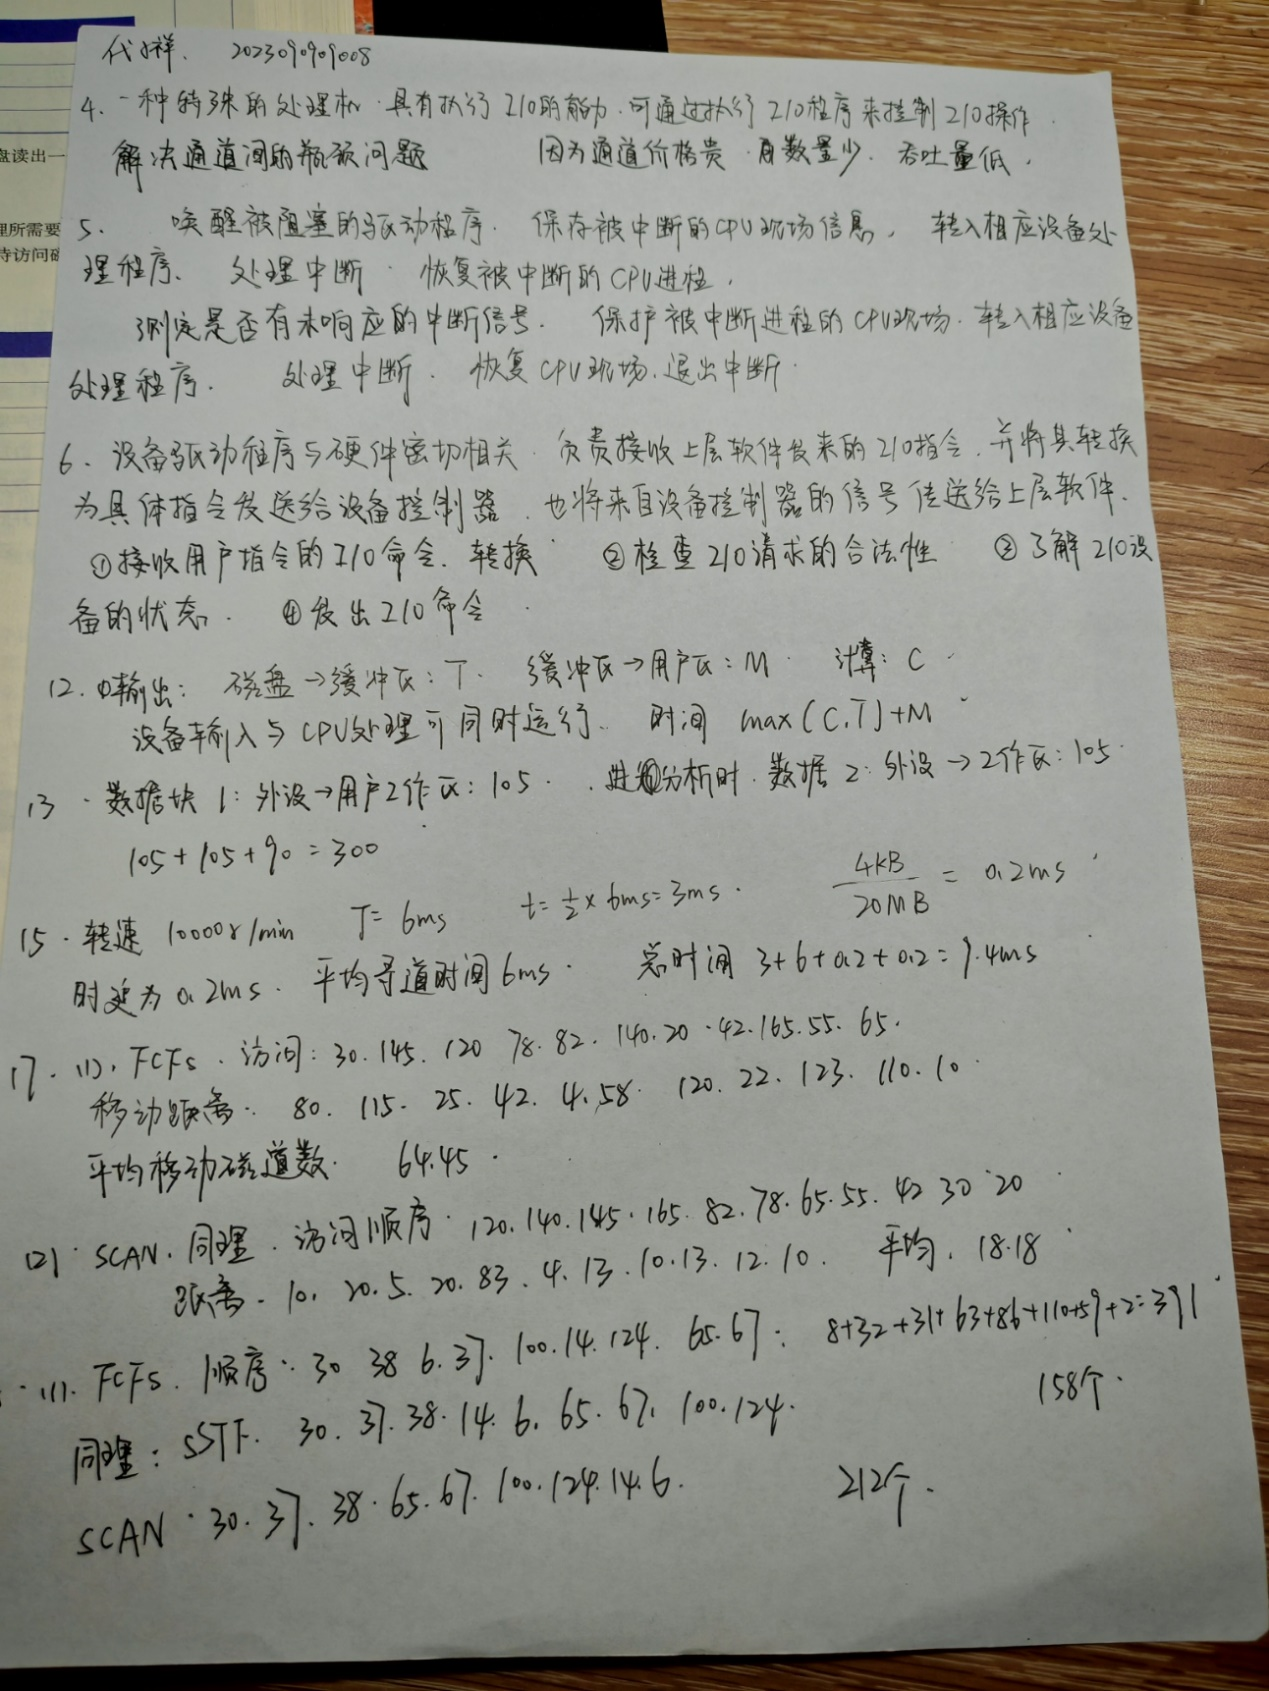 代祥. 2023090909008
盘读出一
理所需要
待访问磁
4. 一种特殊的处理机. 具有执行I/O的能力. 可通过执行I/O程序来控制I/O操作.
解决通道间的瓶颈问题 因为通道价格贵 数量少. 吞吐量低.
5. 唤醒被阻塞的驱动程序. 保存被中断的CPU现场信息, 转入相应设备处
理程序. 处理中断. 恢复被中断的CPU进程.
测定是否有未响应的中断信号. 保护被中断进程的CPU现场. 转入相应设备
处理程序. 处理中断. 恢复CPU现场. 退出中断.
6. 设备驱动程序与硬件密切相关. 负责接收上层软件发来的I/O指令. 并将其转换
为具体指令发送给设备控制器. 也将来自设备控制器的信号传送给上层软件.
①接收用户指令的I/O命令. 转换 ②检查I/O请求的合法性 ③了解I/O设
备的状态. ④发出I/O命令.
12. ①输出: 磁盘→缓冲区: T. 缓冲区→用户区: M. 计算: C.
设备输入与CPU处理可同时运行. 时间 max(C.T)+M
13. 数据块1: 外设→用户工作区: 105. 进分析时. 数据2: 外设→工作区: 105.
105+105+90=300
15. 转速 10000r/min T=6ms t=½×6ms=3ms. 4KB/20MB = 0.2ms
时延为0.2ms. 平均寻道时间6ms. 总时间 3+6+0.2+0.2=9.4ms
17. (1). FCFS. 访问: 30. 145. 120 78. 82. 140. 20. 42. 165. 55. 65.
移动距离: 80. 115. 25. 42. 4. 58. 120. 22. 123. 110. 10.
平均移动磁道数. 64.45.
(2). SCAN. 同理. 访问顺序. 120. 140. 145. 165. 82. 78. 65. 55. 42 30 20
距离. 10. 20. 5. 20. 83. 4. 13. 10. 13. 12. 10. 平均. 18.18.
(1). FCFS. 顺序: 30 38 6. 37. 100. 14. 124. 65. 67: 8+32+31+63+86+110+59+2=391
同理: SSTF. 30. 37. 38. 14. 6. 65. 67. 100. 124. 158个.
SCAN. 30. 37. 38. 65. 67. 100. 124. 14. 6. 212个.